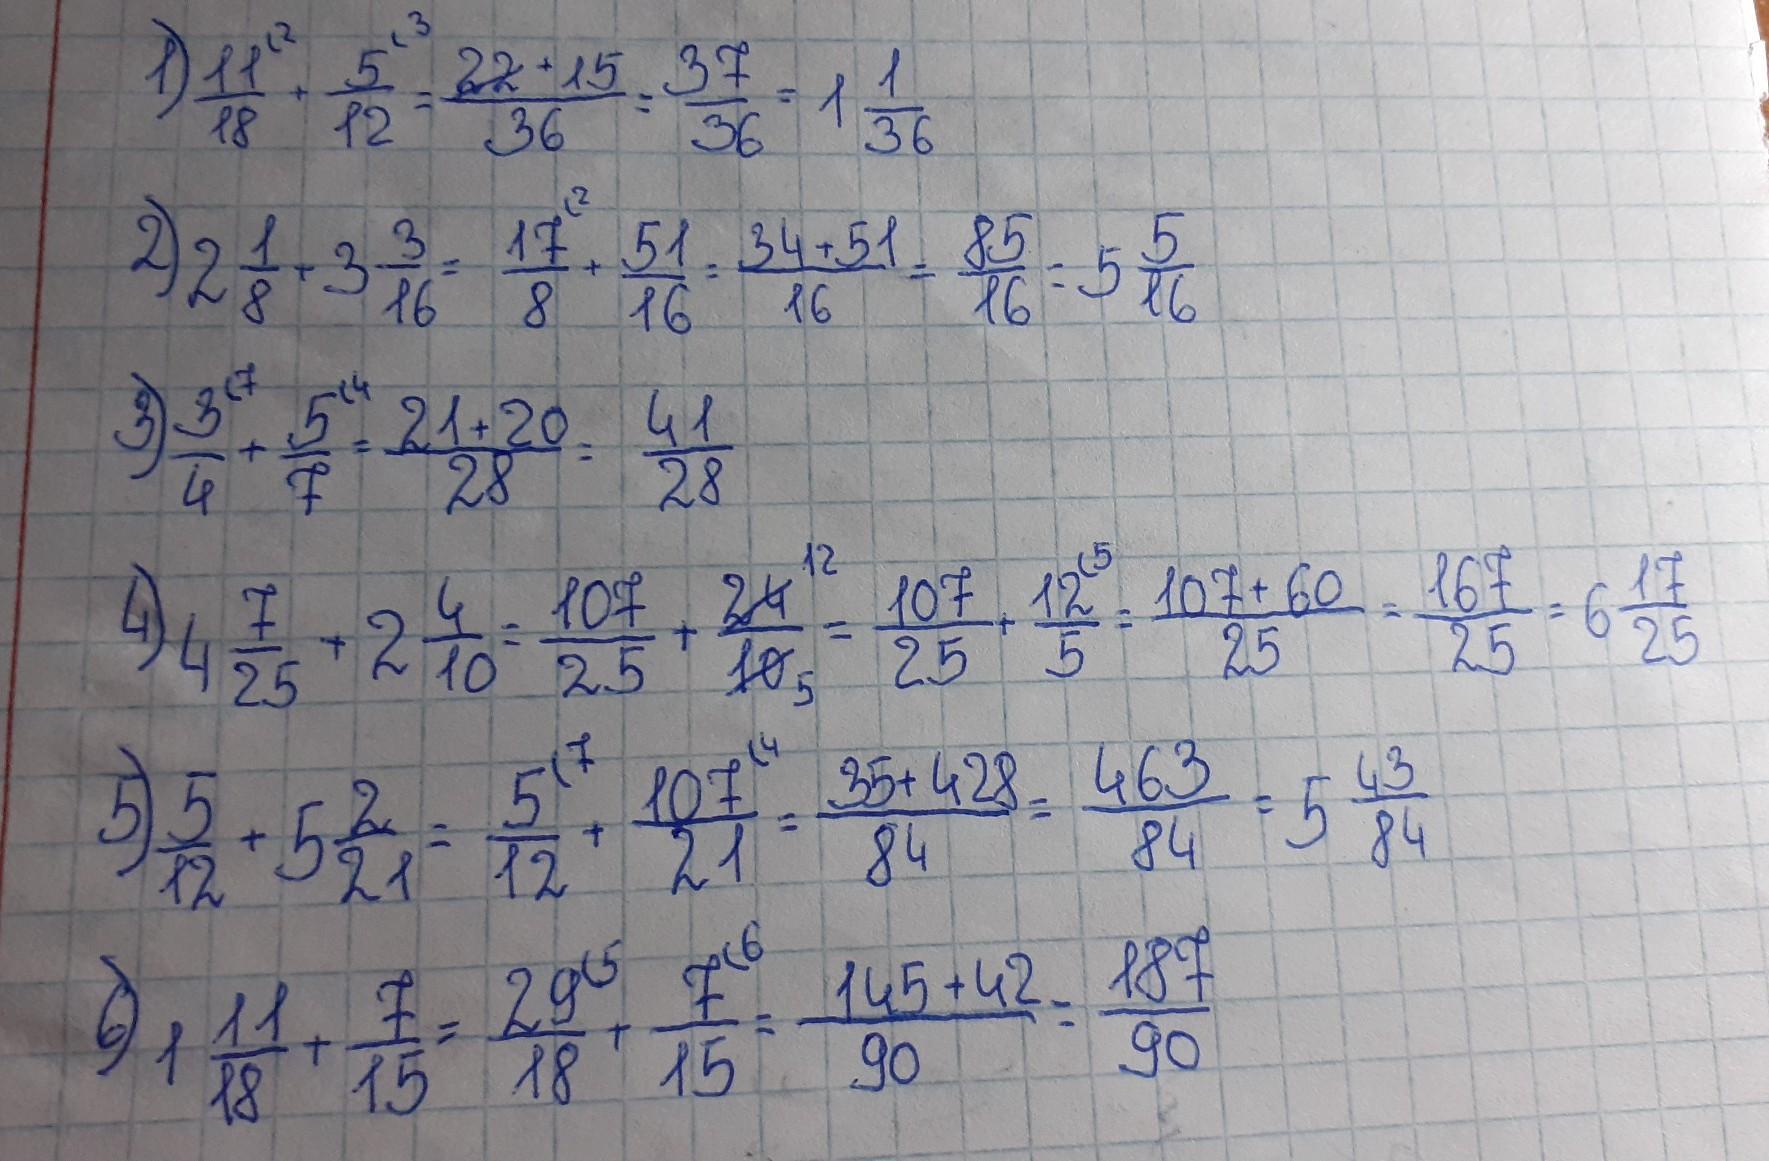 1) 11⁽²/18 + 5⁽³/12 = 22+15/36 = 37/36 = 1 1/36
2) 2 1/8 + 3 3/16 = 17⁽²/8 + 51/16 = 34+51/16 = 85/16 = 5 5/16
3) 3⁽⁷/4 + 5⁽⁴/7 = 21+20/28 = 41/28
4) 4 7/25 + 2 4/10 = 107/25 + 24 12/10 5 = 107/25 + 12⁽⁵/5 = 107+60/25 = 167/25 = 6 17/25
5) 5/12 + 5 2/21 = 5⁽⁷/12 + 107⁽⁴/21 = 35+428/84 = 463/84 = 5 43/84
6) 1 11/18 + 7/15 = 29⁽⁵/18 + 7⁽⁶/15 = 145+42/90 = 187/90